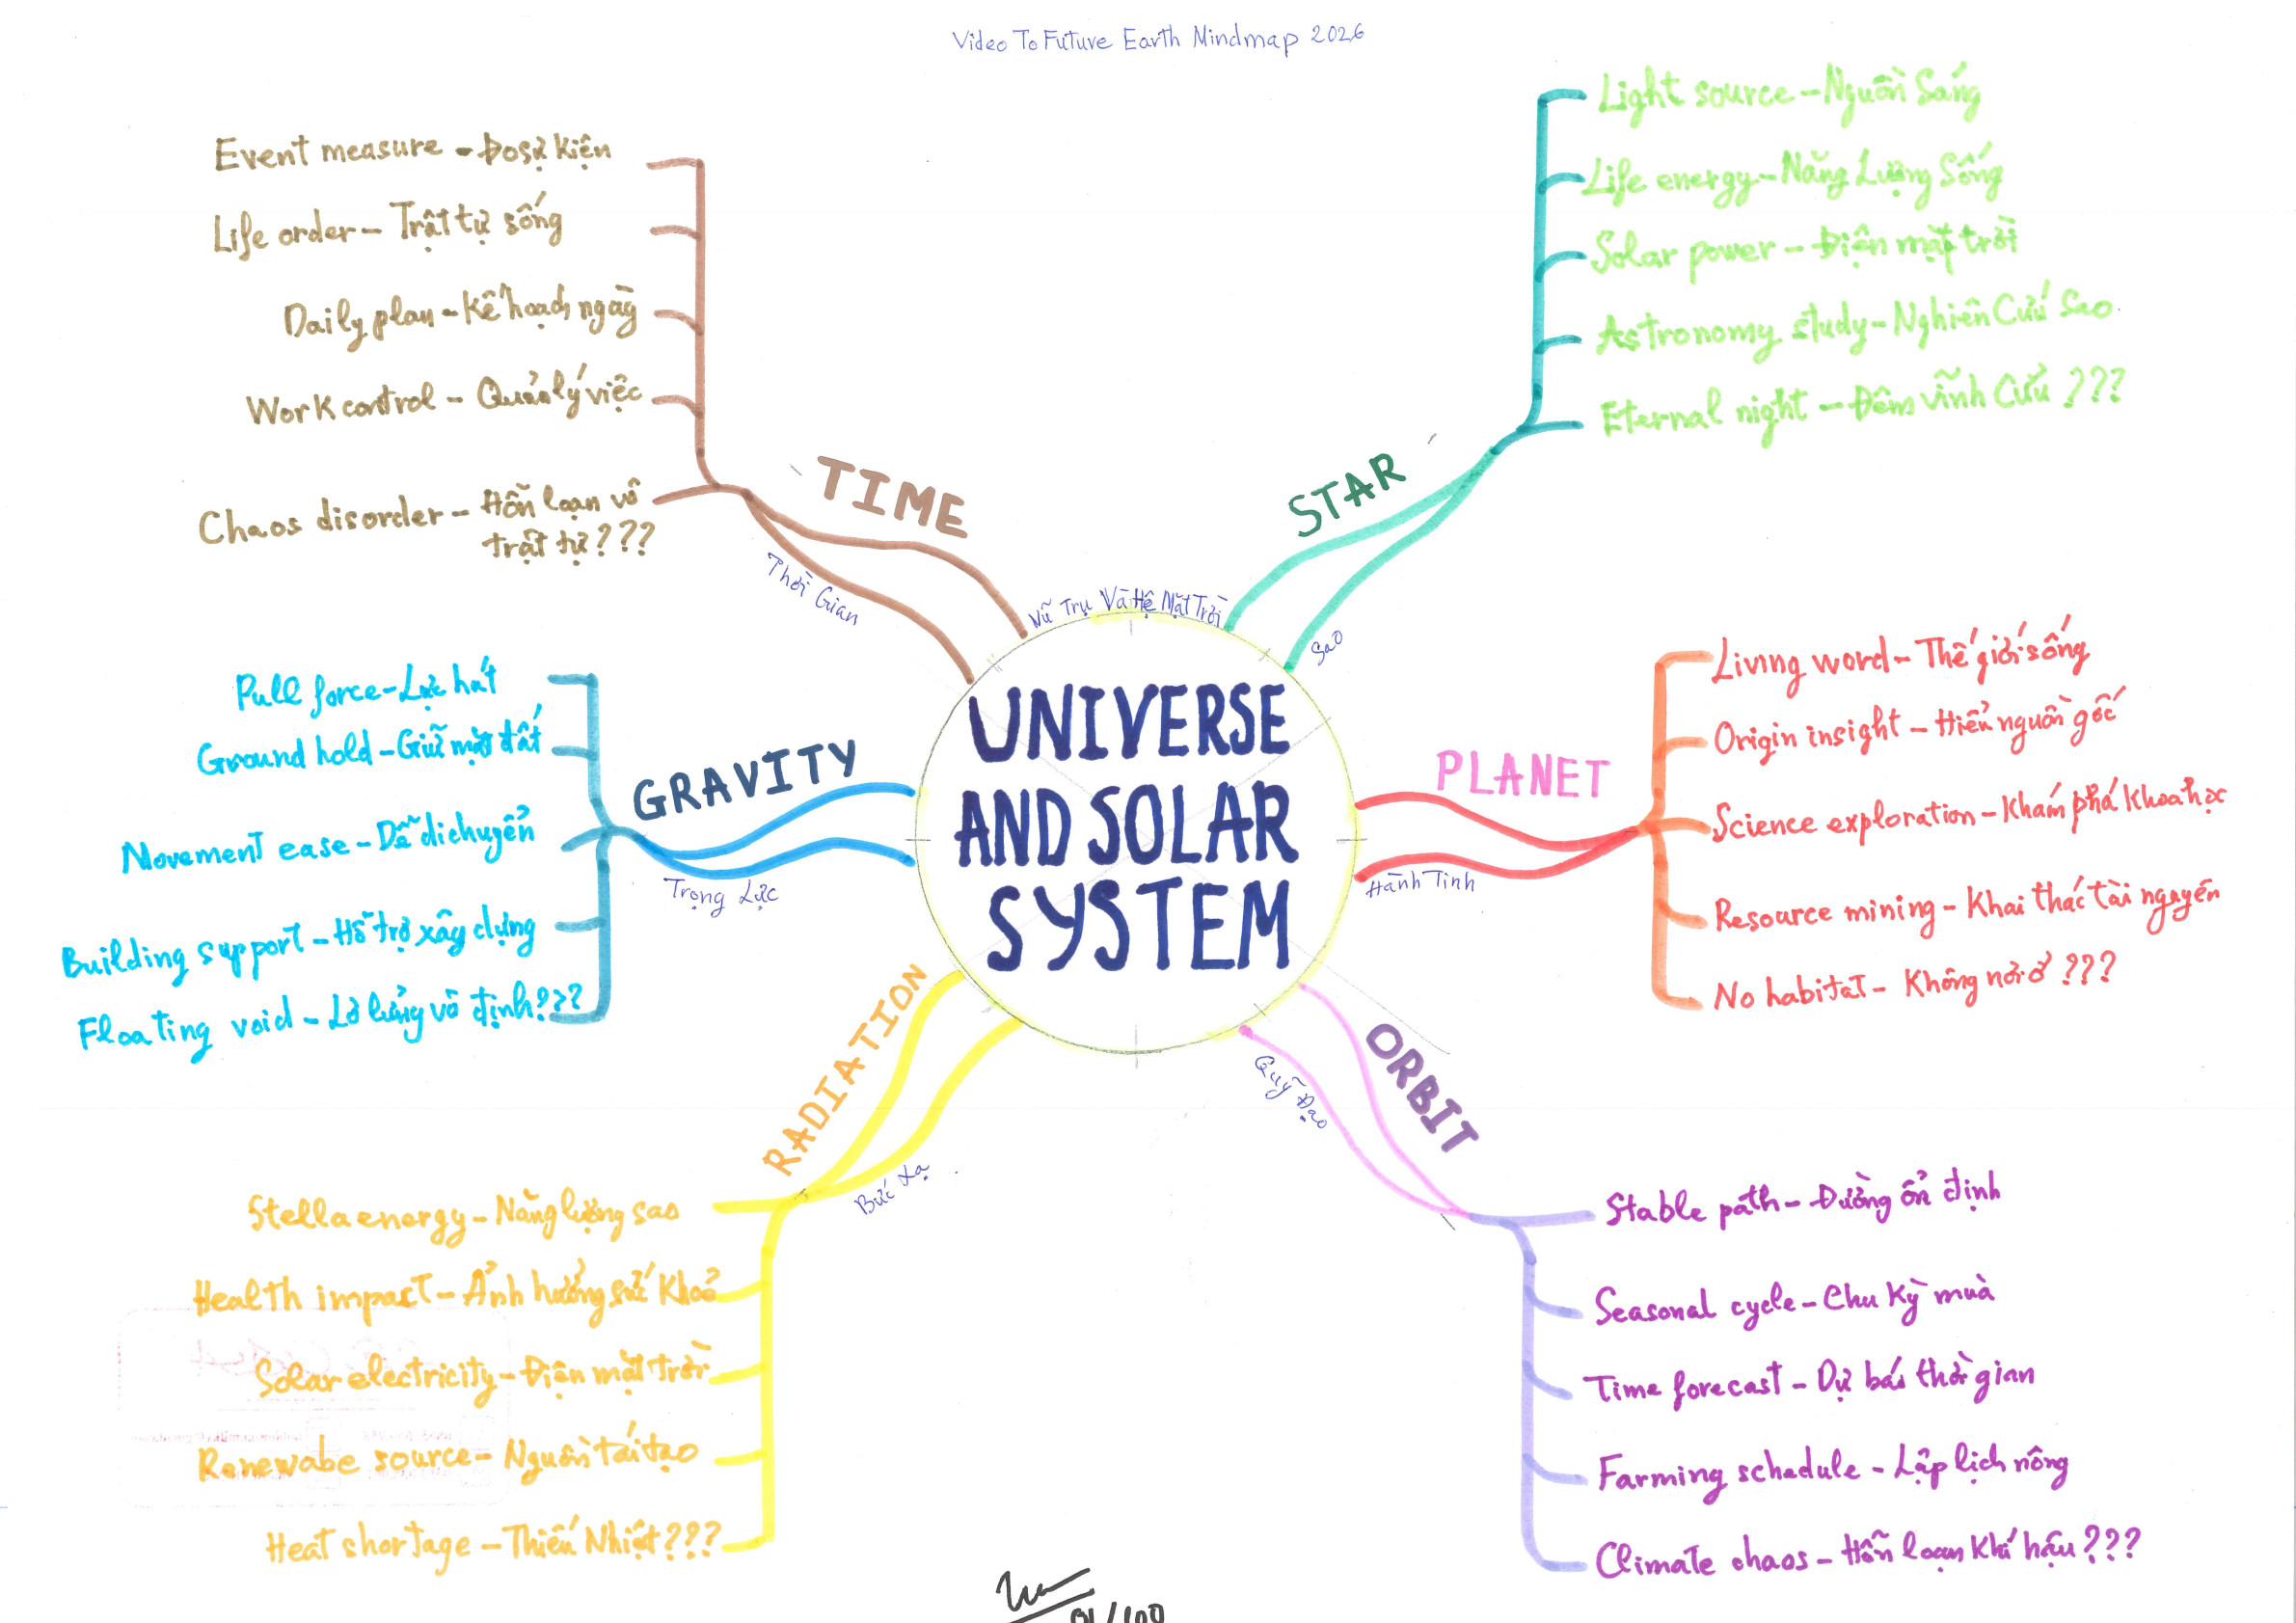 Video To Future Earth Mindmap 2026
UNIVERSE
AND SOLAR
SYSTEM
Vũ Trụ Và Hệ Mặt Trời
STAR
Sao
Light source - Nguồn Sáng
Life energy - Năng Lượng Sống
Solar power - Điện mặt trời
Astronomy study - Nghiên Cứu Sao
Eternal night - Đêm vĩnh Cửu ???
PLANET
Hành Tinh
Living word - Thế giới sống
Origin insight - Hiểu nguồn gốc
Science exploration - Khám phá khoa học
Resource mining - Khai thác tài nguyên
No habitat - Không nơi ở ???
ORBIT
Quỹ Đạo
Stable path - Đường ổn định
Seasonal cycle - Chu Kỳ mùa
Time forecast - Dự báo thời gian
Farming schedule - Lập lịch nông
Climate chaos - Hỗn loạn Khí hậu ???
RADIATION
Bức Xạ
Stella energy - Năng lượng sao
Health impact - Ảnh hưởng sức Khoẻ
Solar electricity - Điện mặt trời
Renewabe source - Nguồn tái tạo
Heat shortage - Thiếu Nhiệt ???
GRAVITY
Trọng Lực
Pull force - Lực hút
Ground hold - Giữ mặt đất
Movement ease - Dễ di chuyển
Building support - Hỗ trợ xây dựng
Floating void - Lơ lửng vô định ???
TIME
Thời Gian
Event measure - Đo sự kiện
Life order - Trật tự sống
Daily plan - Kế hoạch ngày
Work control - Quản lý việc
Chaos disorder - Hỗn loạn vô
trật tự ???